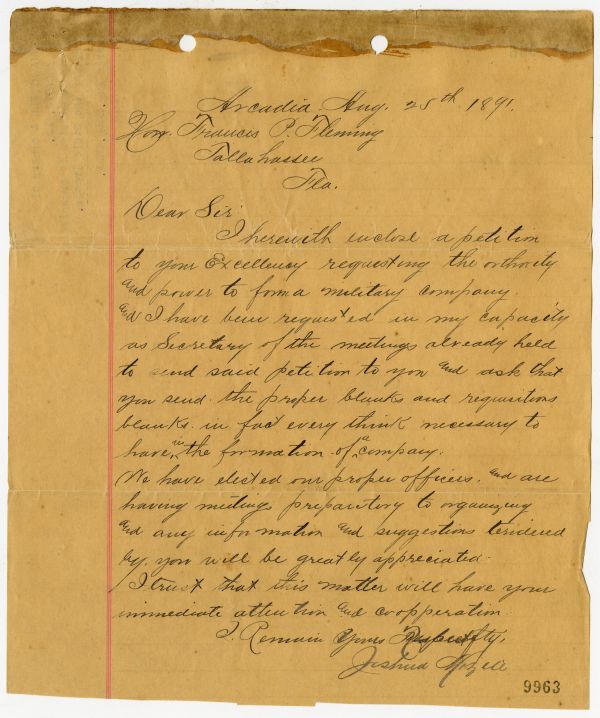 Arcadia Aug. 25th 1891.
Hon. Francis P. Fleming
Tallahassee
Fla.
Dear Sir
I herewith enclose a petition
to your Excellency requesting the authority
and power to form a military company
and I have been requested in my capacity
as Secretary of the meetings already held
to send said petition to you and ask that
you send the proper blanks and requisitions
blanks. in fact every think necessary to
have, in the formation of a company.
We have elected our proper officers. and are
having meetings preparatory to organizing
and any information and suggestions tendered
by. you will be greatly appreciated.
I trust that this matter will have your
immediate attention and cooperation.
I. Remain Yours Respectfly,
Joshua
9963